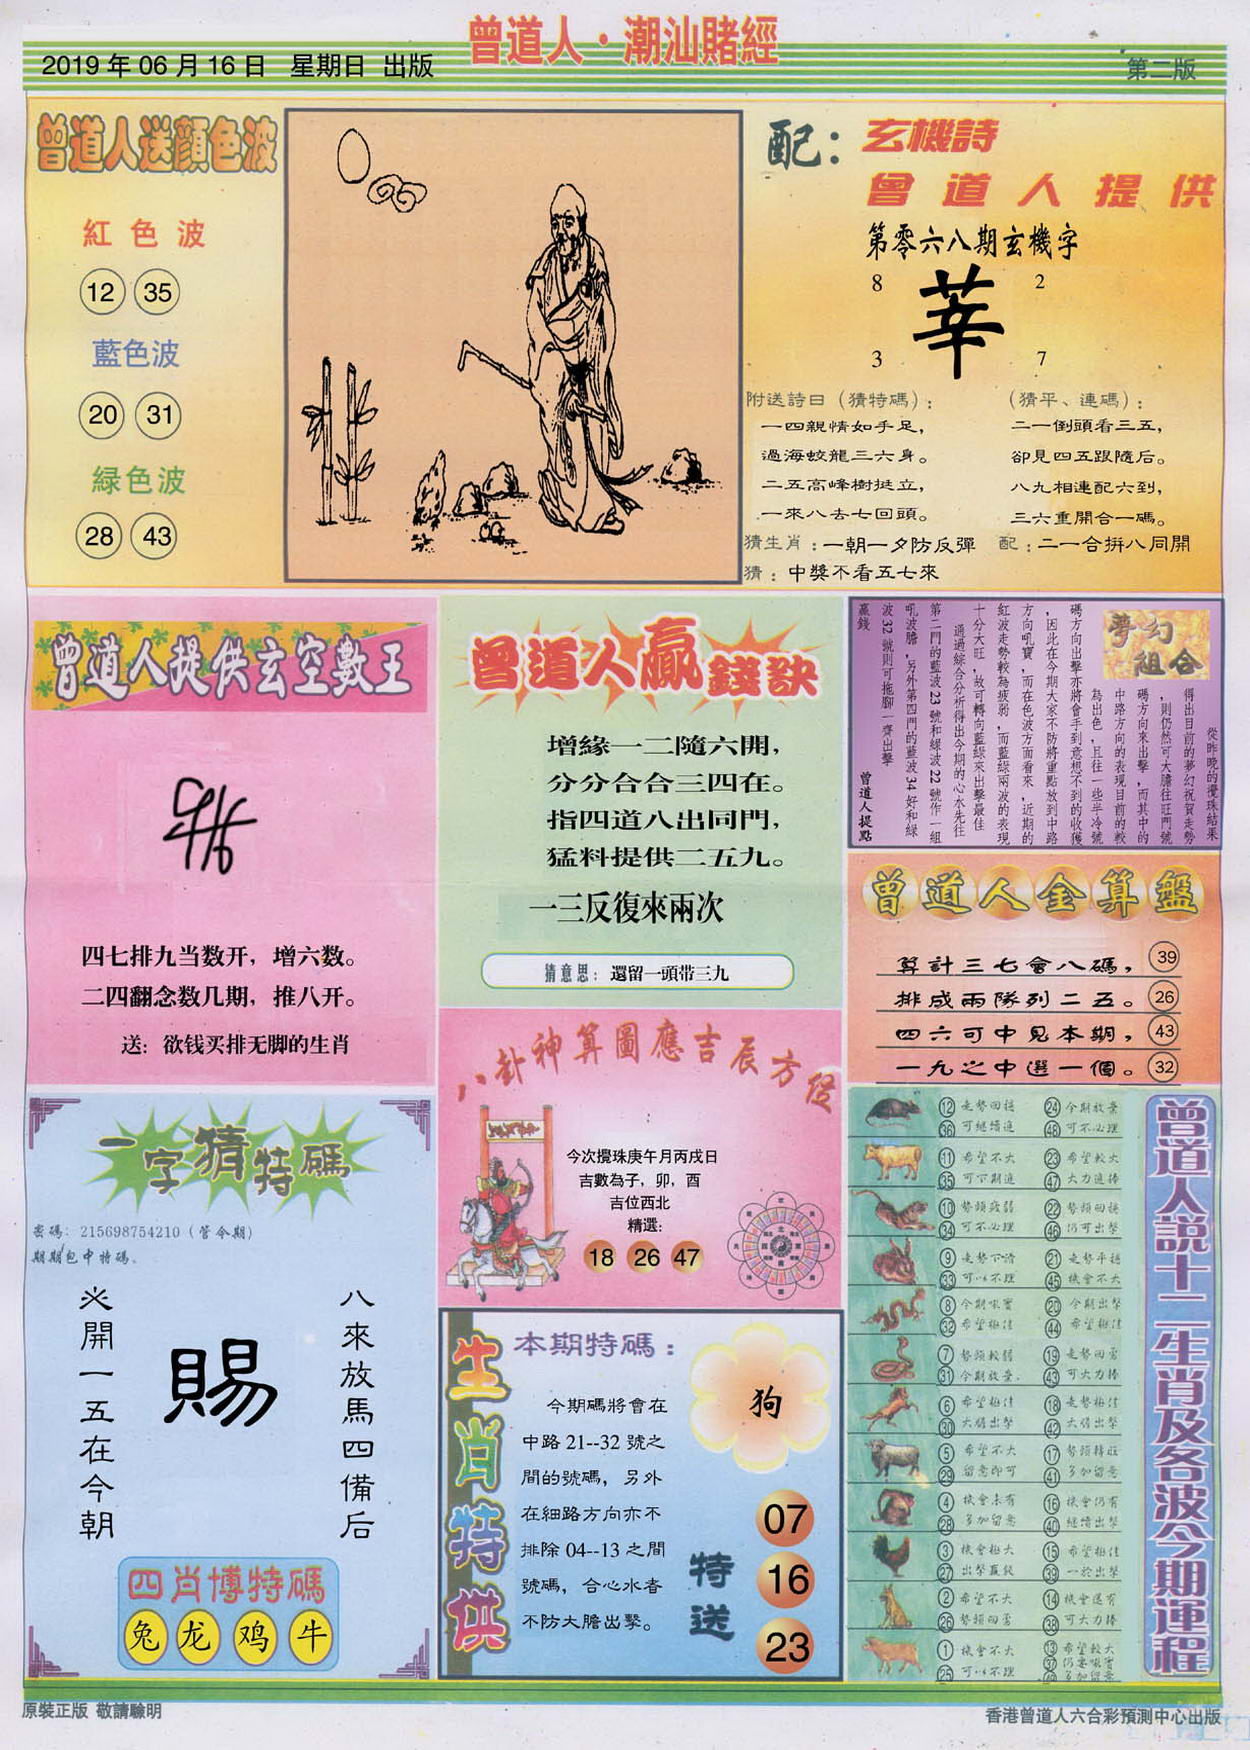 曾道人·潮汕賭經
2019年06月16日 星期日 出版
第二版
曾道人送顔色波
紅色波
12 35
藍色波
20 31
緑色波
28 43
配：玄機詩
曾道人提供
第零六八期玄機字
8 2
莘
3 7
附送詩曰（猜特碼）：
一四親情如手足，
過海蛟龍三六身。
二五高峰樹挺立，
一來八去七回頭。
（猜平、連碼）：
二一倒頭看三五，
卻見四五跟隨后。
八九相連配六到，
三六重開合一碼。
猜生肖：一朝一夕防反彈
配：二一合拼八同開
猜：中獎不看五七來
曾道人提供玄空數王
四七排九当数开，增六数。
二四翻念数几期，推八开。
送：欲钱买排无脚的生肖
曾道人贏錢訣
增緣一二隨六開，
分分合合三四在。
指四道八出同門，
猛料提供二五九。
一三反復來兩次
猜意思：還留一頭带三九
夢幻組合
從昨晚的攪珠結果
得出目前的夢幻祝賀走勢
，則仍然可大膽往旺門號
碼方向來出擊，而其中的
中路方向的表現目前的較
為出色，且往一些半冷號
碼方向出擊亦將會手到意想不到的收獲
，因此在今期大家不防將重點放到中路
方向吼寶，而在色波方面看來，近期的
紅波走勢較為疲弱，而藍綠兩波的表現
十分大旺，故可轉向藍綠來出擊最佳
通過綜合分析得出今期的心水先往
第二門的藍波23號和綠波22號作一組
吼波膽，另外第四門的藍波34好和綠
波32號則可拖腳一齊出擊
贏錢
曾道人提點
曾道人金算盤
算計三七會八碼， 39
排成兩隊列二五。 26
四六可中見本期， 43
一九之中選一個。 32
八卦神算圖應吉辰方位
今次攪珠庚午月丙戌日
吉數為子，卯，酉
吉位西北
精選：
18 26 47
一字猜特碼
密碼：215698754210（管令期）
期期包中特碼。
八來放馬四備后
賜
※開一五在今朝
四肖博特碼
兔 龙 鸡 牛
生肖特供
本期特碼：
狗
今期碼將會在
中路21--32號之
間的號碼，另外
在細路方向亦不
排除04--13之間
號碼，合心水者
不防大膽出擊。
特送
07
16
23
曾道人説十二生肖及各波今期運程
12 走勢回穩 24 今期放棄
36 可繼續追 48 可不必理
11 希望不大 23 希望較大
35 可下期追 47 大力追捧
10 勢頭疲弱 22 勢頭回穩
34 可不必理 46 仍可出擊
9 走勢下滑 21 走勢平穩
33 可以不理 45 機會不大
8 今期吼寶 20 今期出擊
32 希望極佳 44 希望極佳
7 勢頭較弱 19 走勢回落
31 今期放棄 43 可大力捧
6 希望極佳 18 走勢極佳
30 大膽出擊 42 大膽出擊
5 希望不大 17 勢頭轉旺
29 留意即可 41 多加留意
4 機會未有 16 機會仍有
28 多加留意 40 繼續出擊
3 機會極大 15 希望極佳
27 出擊贏錢 39 一於出擊
2 希望不大 14 機會還有
26 勢頭回落 38 可大力捧
1 機會不大 13 希望較大
25 可以不理 37 仍要吼寶
49 多加留意
原裝正版 敬請驗明
香港曾道人六合彩預測中心出版